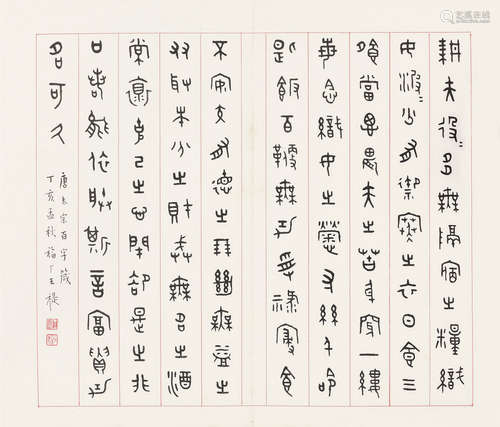 耕夫役〻多無隔宿之糧織
女波〻少有禦寒之衣日食三
飡當思農夫之苦身穿一縷
每念織女之勞寸絲千命
匙飯百鞭無功受祿寢食
不安交有德之朋絕無益之
友取本分之財戒無名之酒
常懷克己之心閉卻是之非
口若能依朕斯言富貴功
名可久
唐太宗百字箴
丁亥孟秋福厂王禔